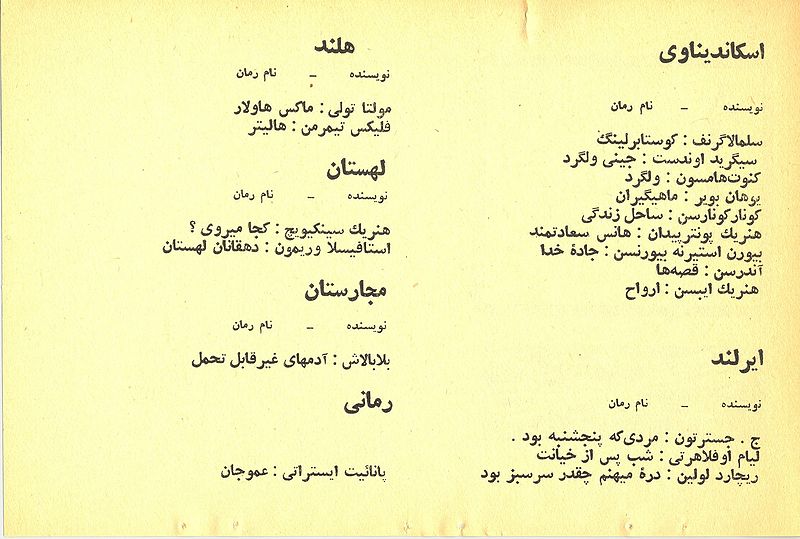 اسکاندیناوی
نویسنده – نام رمان
سلمالاگرنف : کوستابرلینگ
سیگرید اوندست : جینی ولگرد
کنوت‌هامسون : ولگرد
یوهان بویر : ماهیگیران
کونارکونارسن : ساحل زندگی
هنریك پونترپیدان : هانس سعادتمند
بیورن استیرنه بیورنسن : جادهٔ خدا
آندرسن : قصه‌ها
هنریك ایبسن : ارواح
ایرلند
نویسنده – نام رمان
ج . جسترتون : مردی‌که پنجشنبه بود .
لیام اوفلاهرتی : شب پس از خیانت
ریچارد لولین : درهٔ میهنم چقدر سرسبز بود
هلند
نویسنده – نام رمان
مولتا تولی : ماکس هاولار
فلیکس تیمرمن : هالیتر
لهستان
نویسنده – نام رمان
هنریك سینکیویچ : کجا میروی ؟
استافیسلا وریمون : دهقانان لهستان
مجارستان
نویسنده – نام رمان
بلابالاش : آدمهای غیرقابل تحمل
رمانی
پانائیت ایستراتی : عموجان